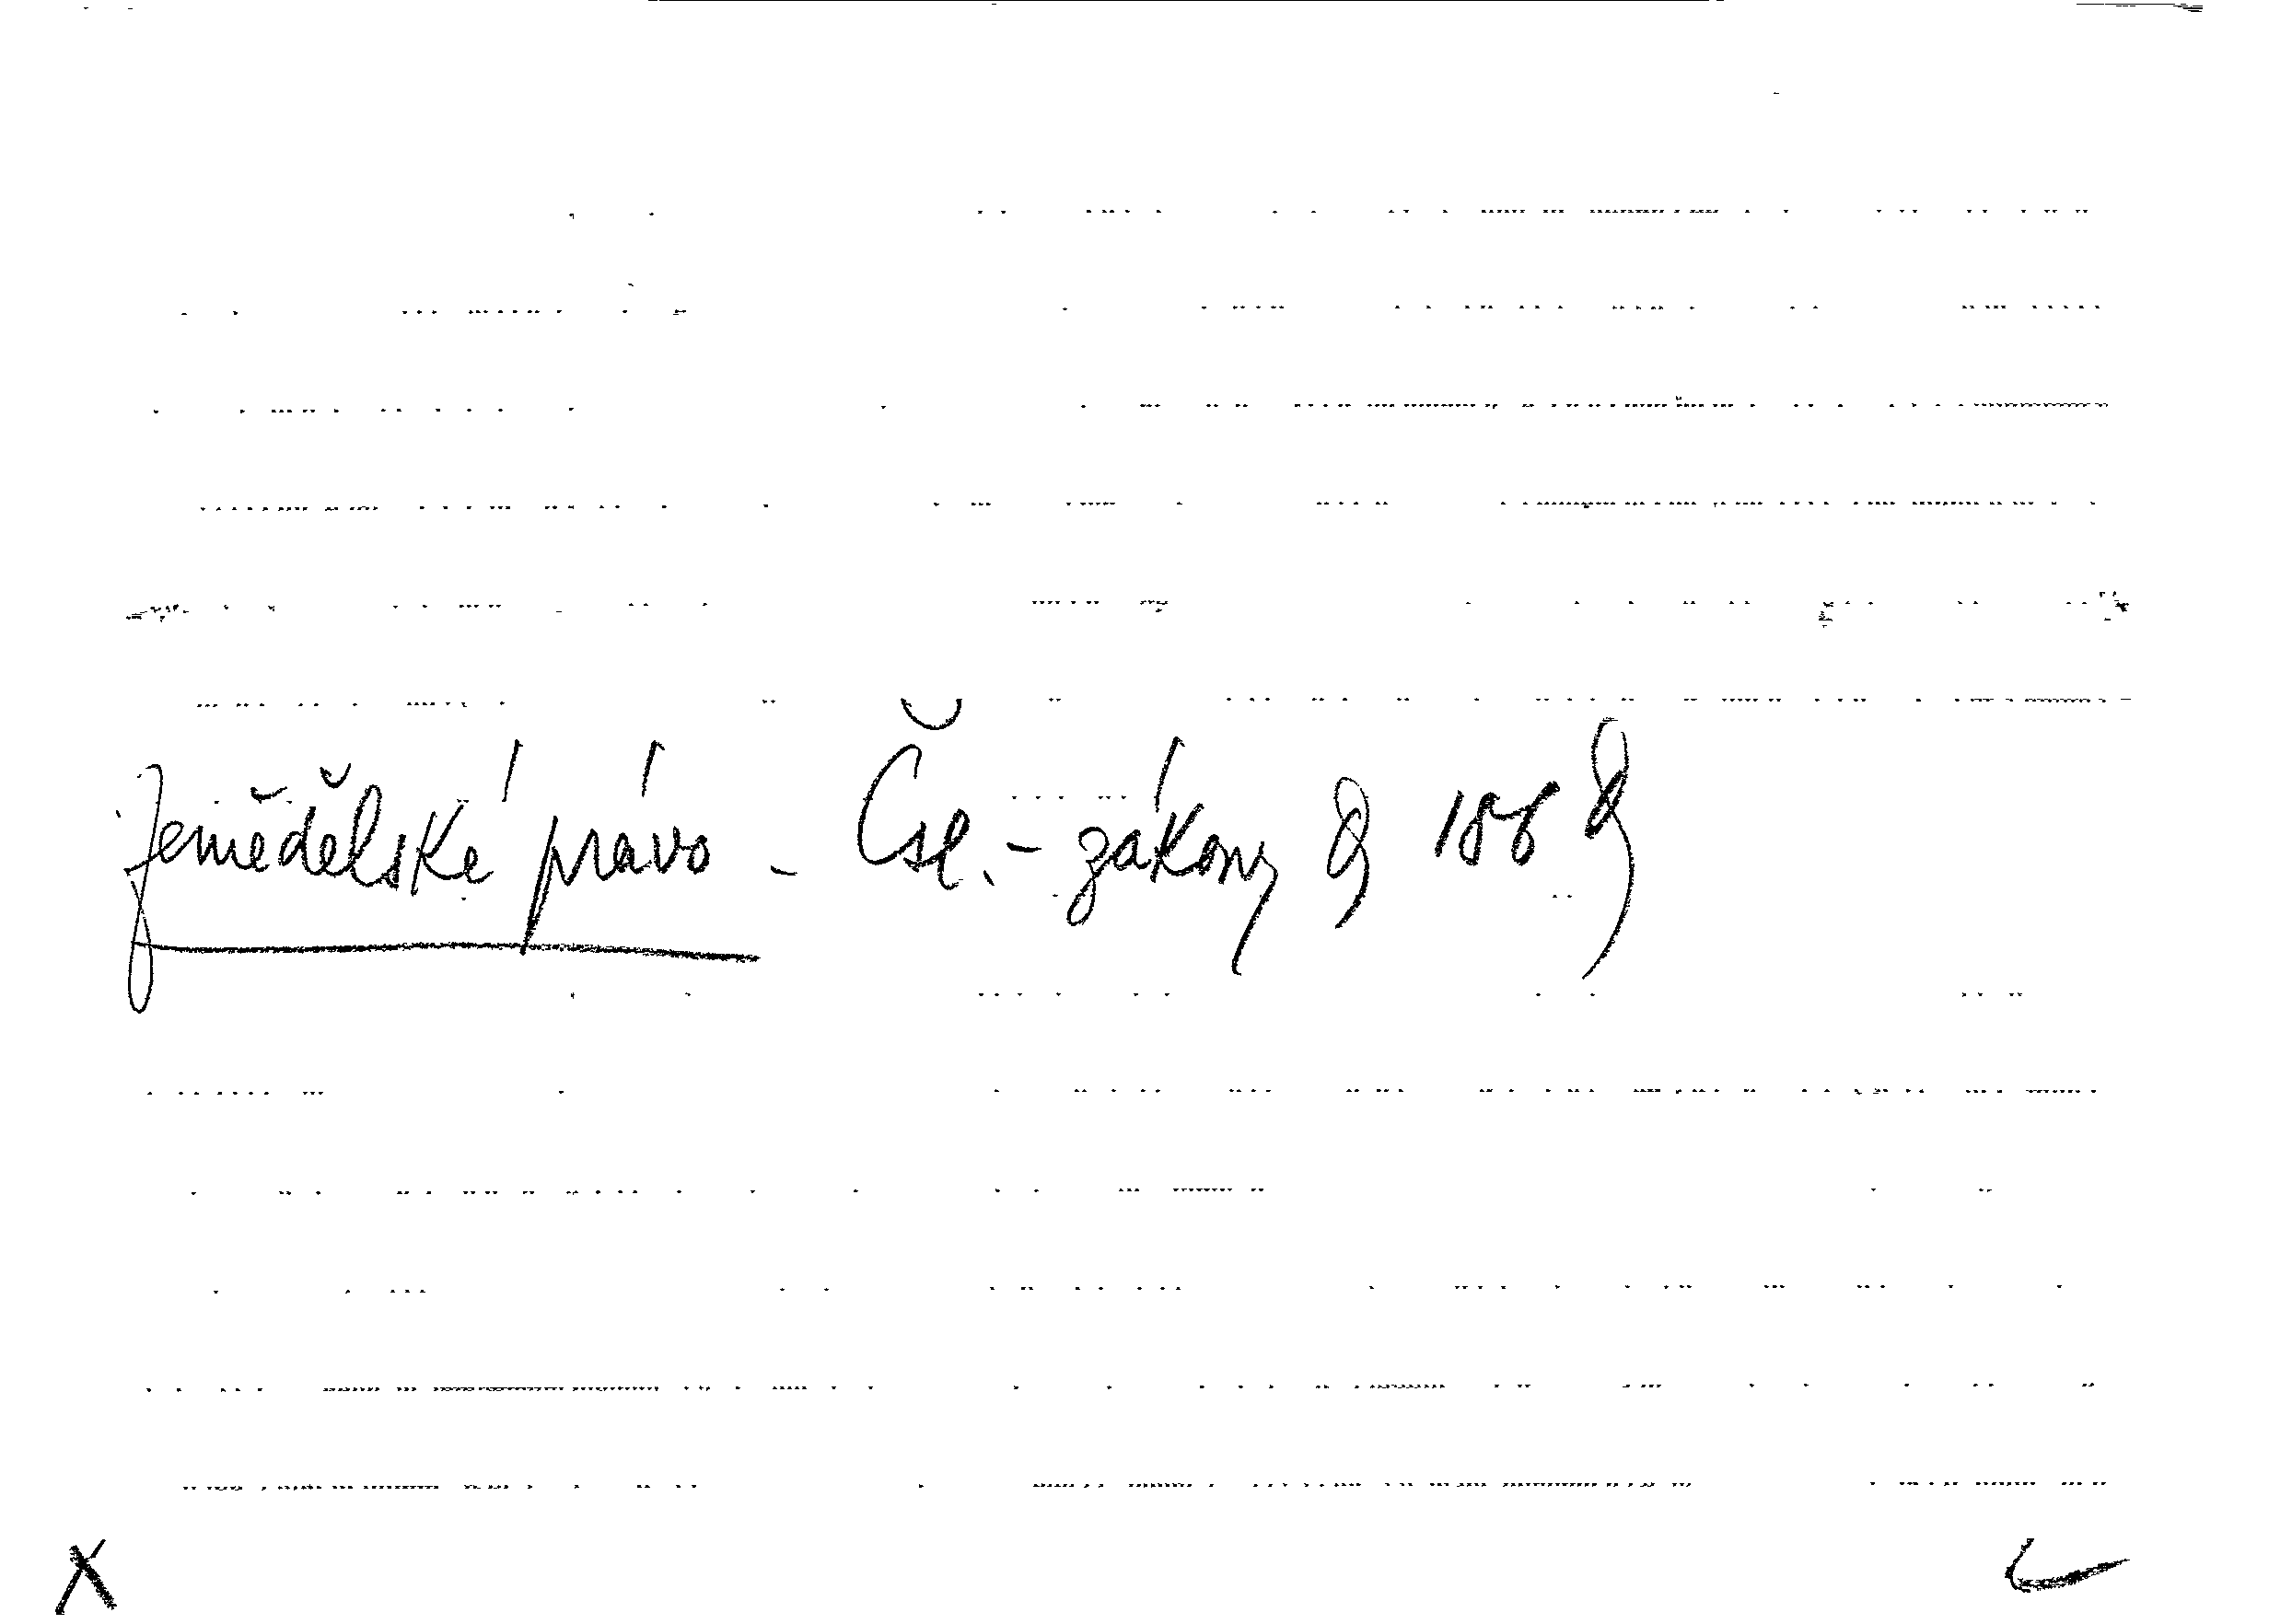 Zemědělské právo - Čsl. - zákony
X